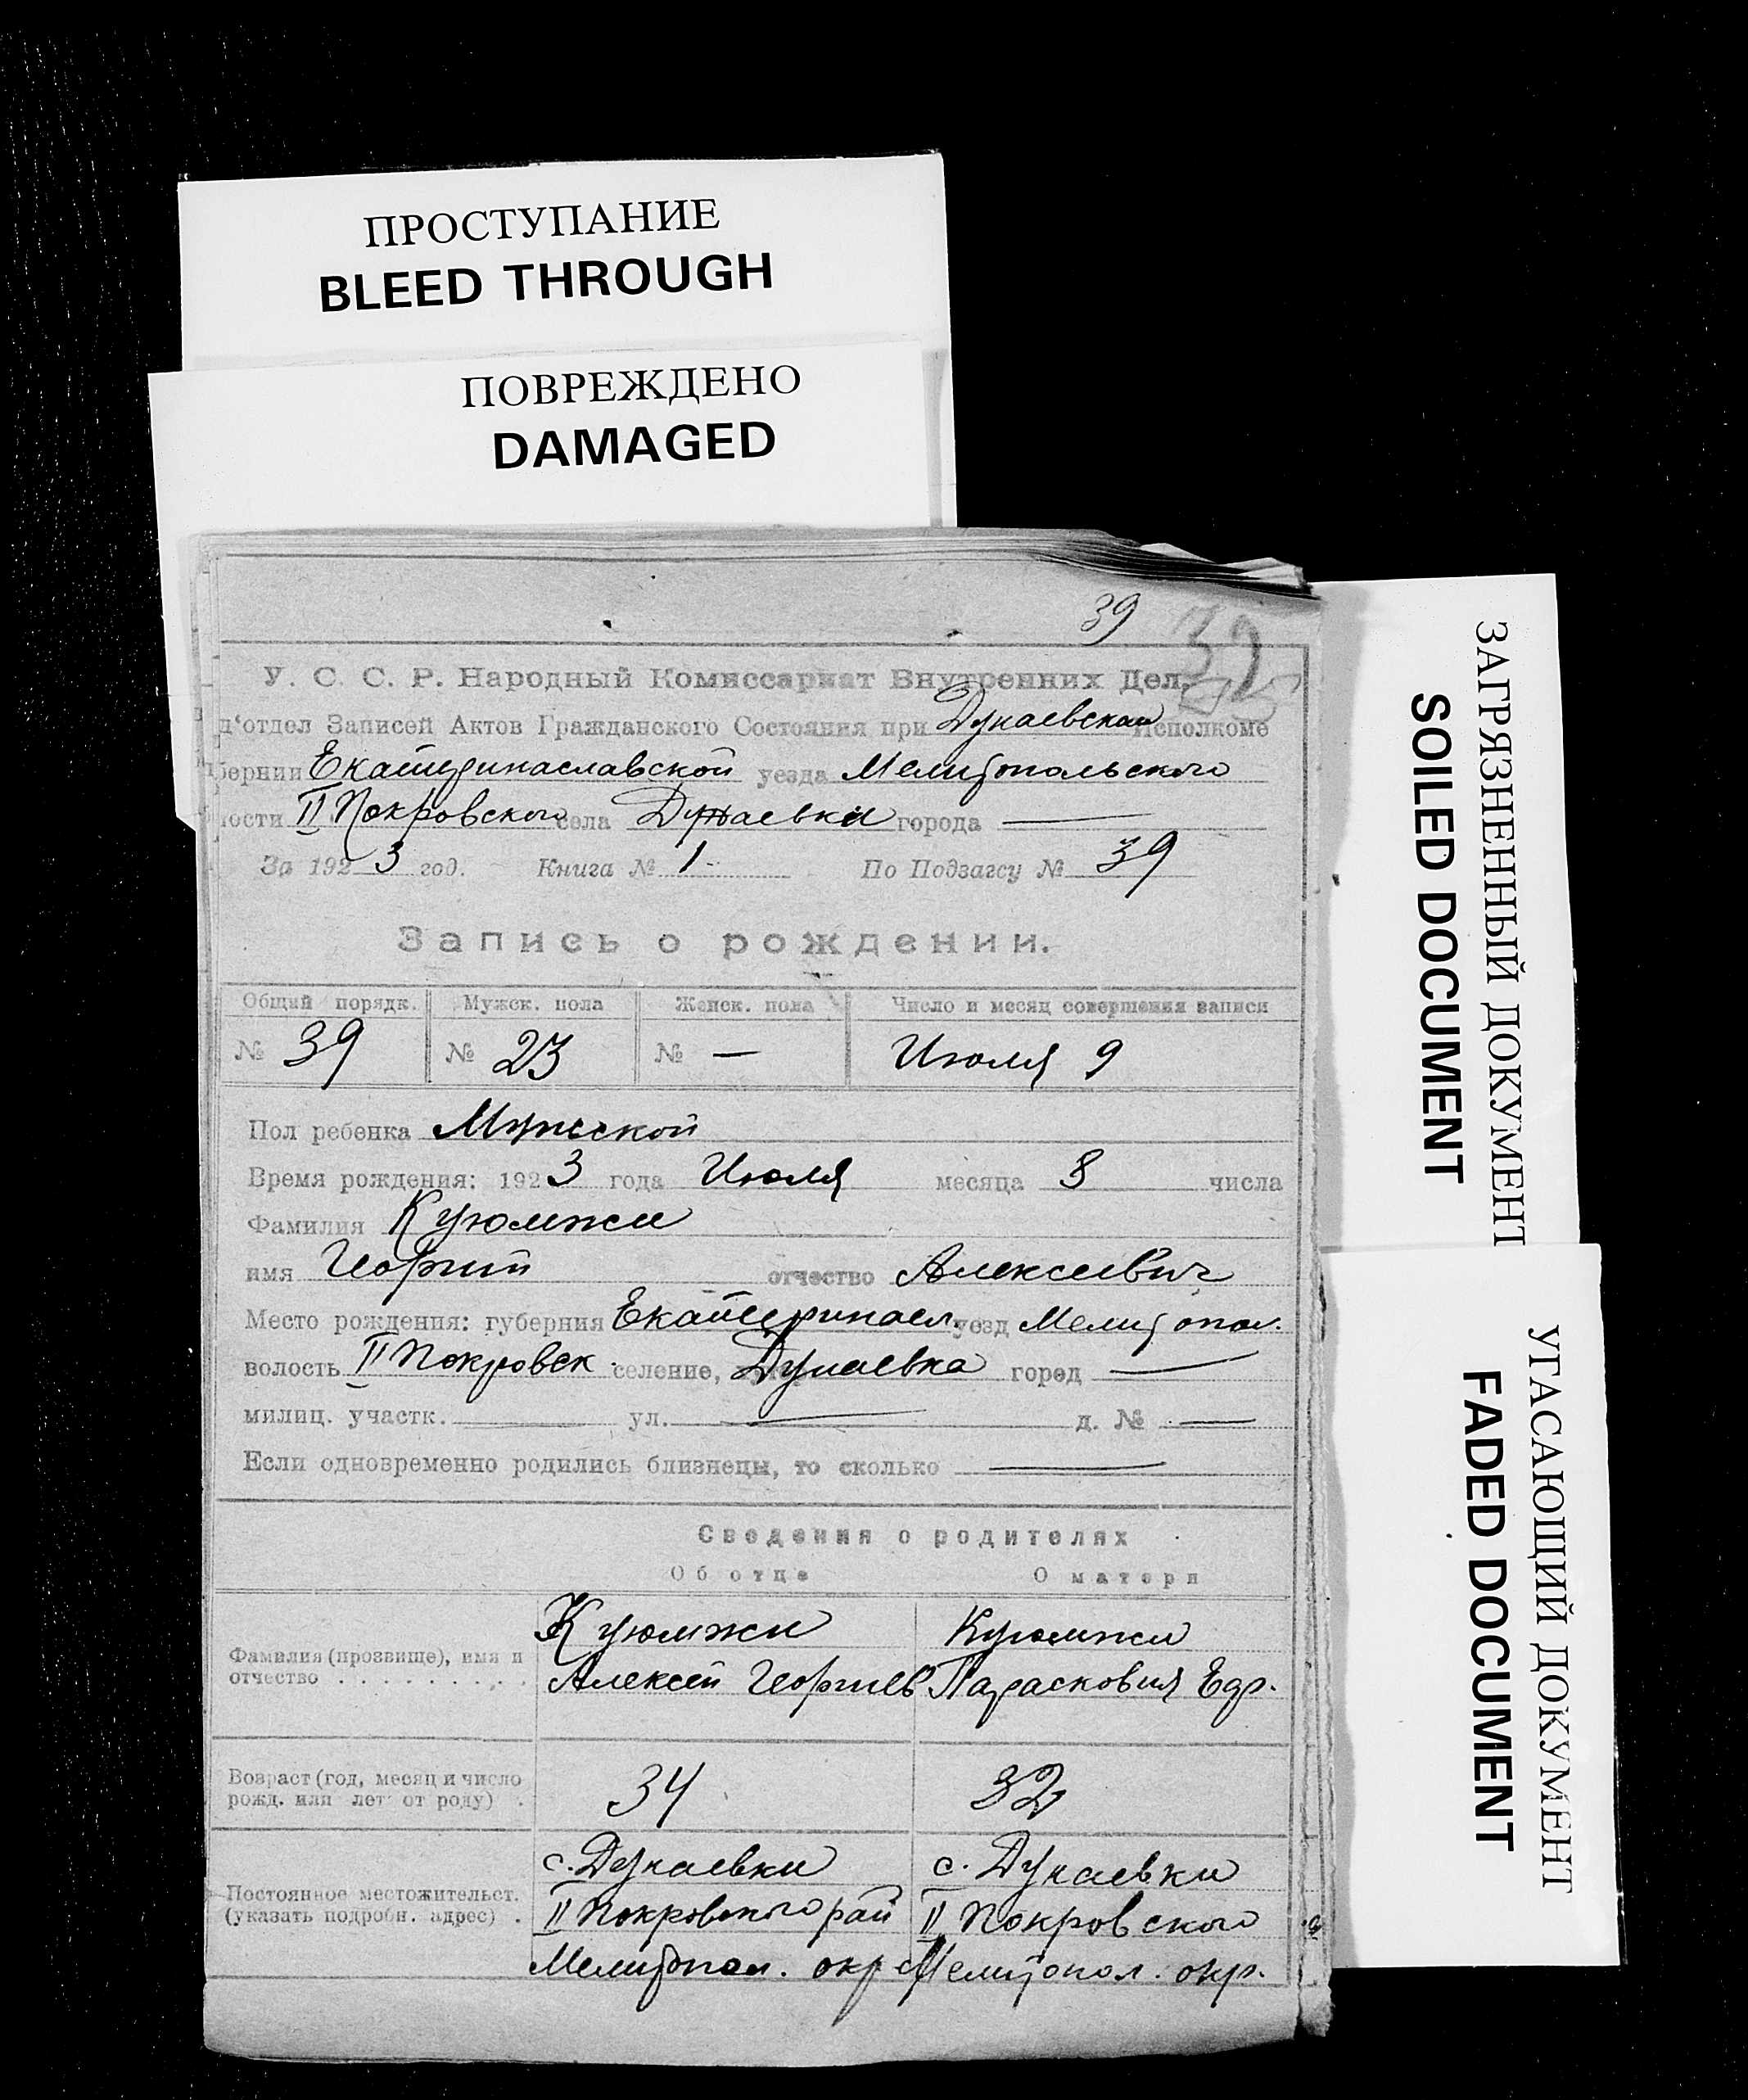 ПРОСТУПАНИЕ
BLEED THROUGH
ПОВРЕЖДЕНО
DAMAGED
39 32
У. С. С. Р. Народный Комиссариат Внутренних Дел.
д‘отдел Записей Актов Гражданского Состояния при Дунаевском Исполкоме
бернии Екатеринаславской уезда Мелитопольского
ости II Покровского села Дунаевки города —
За 1923 год. Книга № 1 По Подзагсу № 39
Запись о рождении.
Общий порядк. Мужск. пола Женск. пола Число и месяц совершения записи
№ 39 № 23 № — Июля 9
Пол ребенка Мужской
Время рождения: 1923 года Июля месяца 8 числа
Фамилия Куюмжи
имя Георгий отчество Алексеевич
Место рождения: губерния Екатеринасл. уезд Мелитопол.
волость II Покровск. селение, Дунаевка город —
милиц. участк. — ул. — д. № —
Если одновременно родились близнецы, то сколько —
Сведения о родителях
Об отце О матери
Фамилия (прозвище), имя и отчество . . . . . . . . .
Куюмжи
Алексей Георгиев
Куюмжи
Парасковия Едр.
Возраст (год, месяц и число рожд. или лет от роду) .
34 32
Постоянное местожительст. (указать подробн. адрес) .
с. Дунаевки
II Покровского рай
Мелитопол. окр
с. Дунаевки
II Покровского
Мелитопол. окр.
ЗАГРЯЗНЕННЫЙ ДОКУМЕНТ
SOILED DOCUMENT
УГАСАЮЩИЙ ДОКУМЕНТ
FADED DOCUMENT